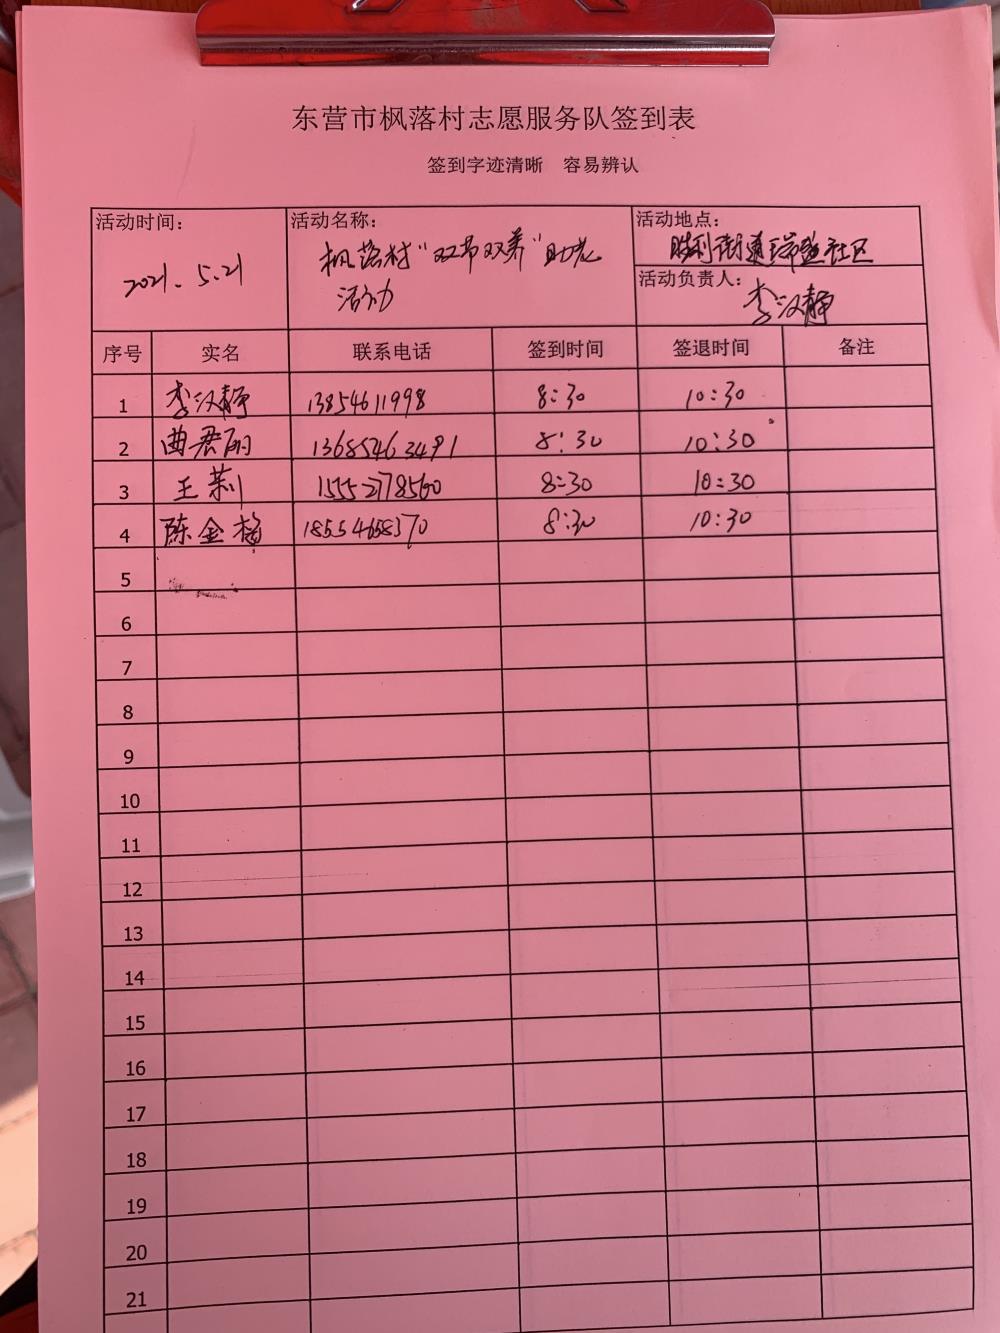 东营市枫落村志愿服务队签到表
签到字迹清晰 容易辨认
活动时间: 2021.5.21
活动名称: 枫落村“双节双养”助老
活动
活动地点: 胜利街道瑞盈社区
活动负责人: 李汉静
序号 实名 联系电话 签到时间 签退时间 备注
1 李汉静 13854611998 8:30 10:30
2 曲君丽 13685463491 8:30 10:30
3 王莉 15552778560 8:30 10:30
4 陈金梅 18554658370 8:30 10:30
5
6
7
8
9
10
11
12
13
14
15
16
17
18
19
20
21